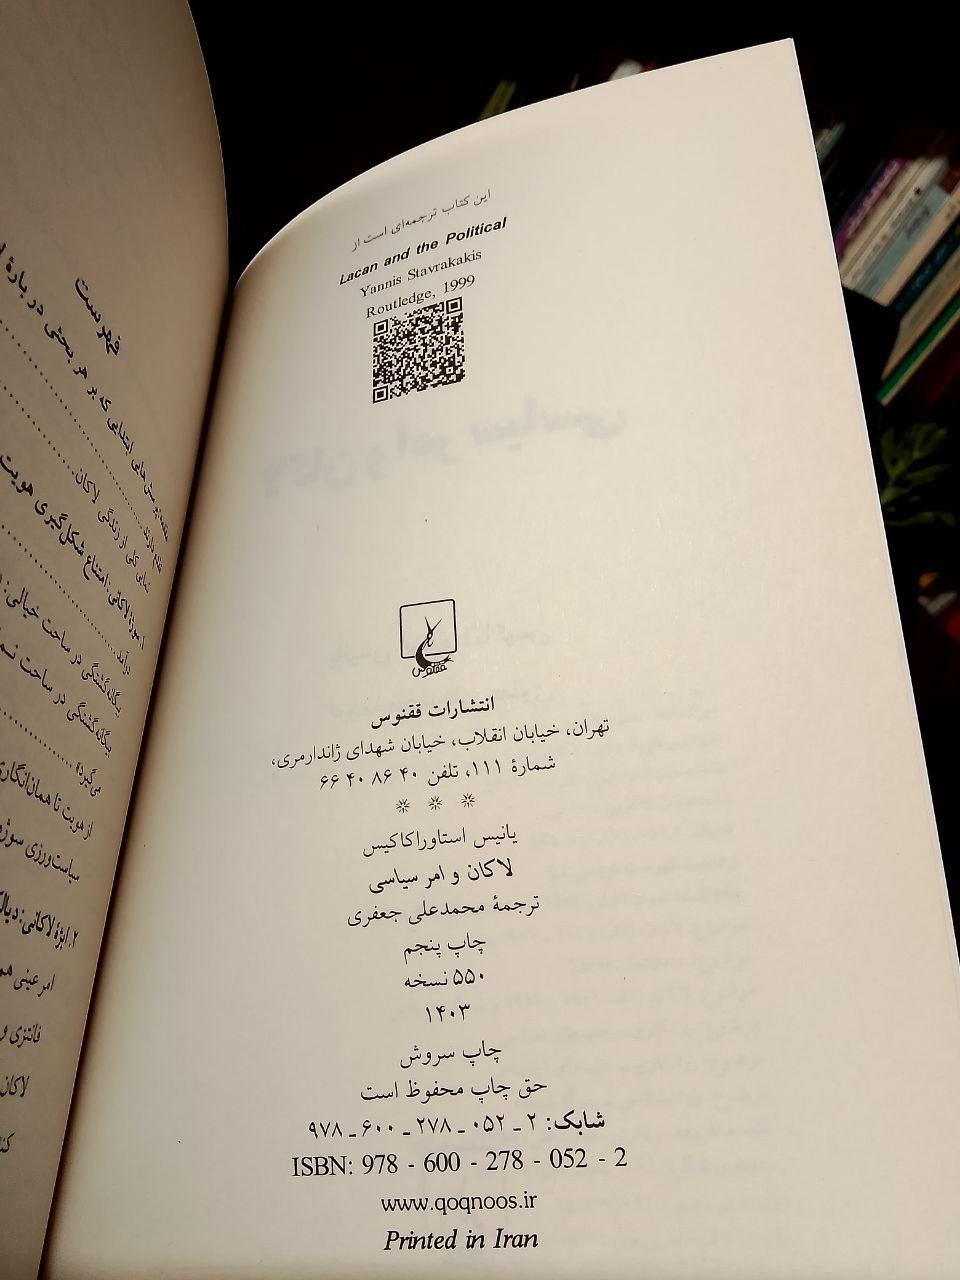 این کتاب ترجمه‌ای است از
Lacan and the Political
Yannis Stavrakakis
Routledge, 1999
ققنوس
انتشارات ققنوس
تهران، خیابان انقلاب، خیابان شهدای ژاندارمری،
شمارهٔ ۱۱۱، تلفن ۴۰ ۸۶ ۴۰ ۶۶
یانیس استاوراکاکیس
لاکان و امر سیاسی
ترجمهٔ محمدعلی جعفری
چاپ پنجم
۵۵۰ نسخه
۱۴۰۳
چاپ سروش
حق چاپ محفوظ است
شابک: ۲ ـ ۰۵۲ ـ ۲۷۸ ـ ۶۰۰ ـ ۹۷۸
ISBN: 978 - 600 - 278 - 052 - 2
www.qoqnoos.ir
Printed in Iran
فهرست
که بر هر بحثی دربارهٔ
نمایی کلی از زندگی لاکان
۱. سوژهٔ لاکانی: امتناع شکل‌گیری هویت
درآمد
بیگانه‌گشتگی در ساحت خیالی:
بیگانه‌گشتگی در ساحت
می‌گیرد»
از هویت تا همان‌انگاری
سیاست‌ورزی سوژه
۲. ابژهٔ لاکانی:
امر عینی
فانتزی و
لاکان